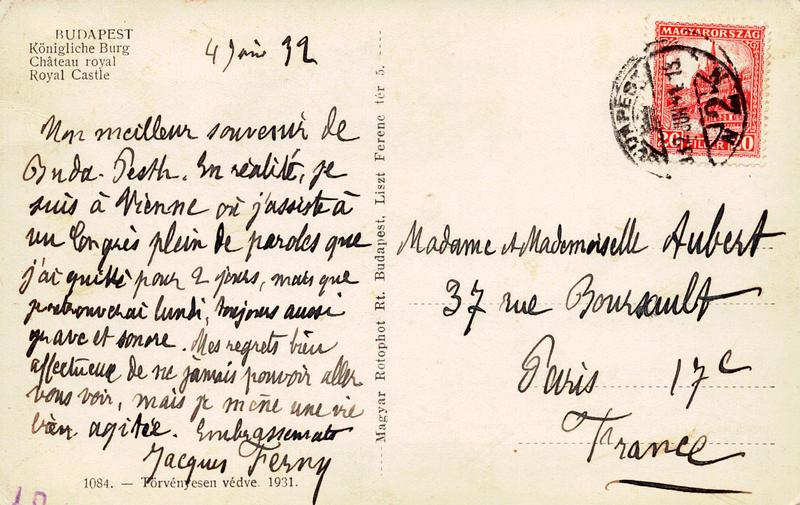 BUDAPEST
Königliche Burg
Château royal
Royal Castle
4 Juin 32
Mon meilleur souvenir de
Buda-Pesth. En réalité, je
suis à Vienne où j'assiste à
un Congrès plein de paroles que
j'ai quitté pour 2 jours, mais que
je retrouverai lundi, toujours aussi
grave et sonore. Mes regrets bien
affectueux de ne jamais pouvoir aller
vous voir, mais je mène une vie
bien agitée. Embrassements
Jacques Ferny
1084. — Törvényesen védve. 1931.
Magyar Rotophot Rt. Budapest, Liszt Ferenc tér 5.
MAGYARORSZÁG
20 FILLÉR 20
BUDAPEST
Madame et Mademoiselle Aubert
37 rue Boursault
Paris 17e
France